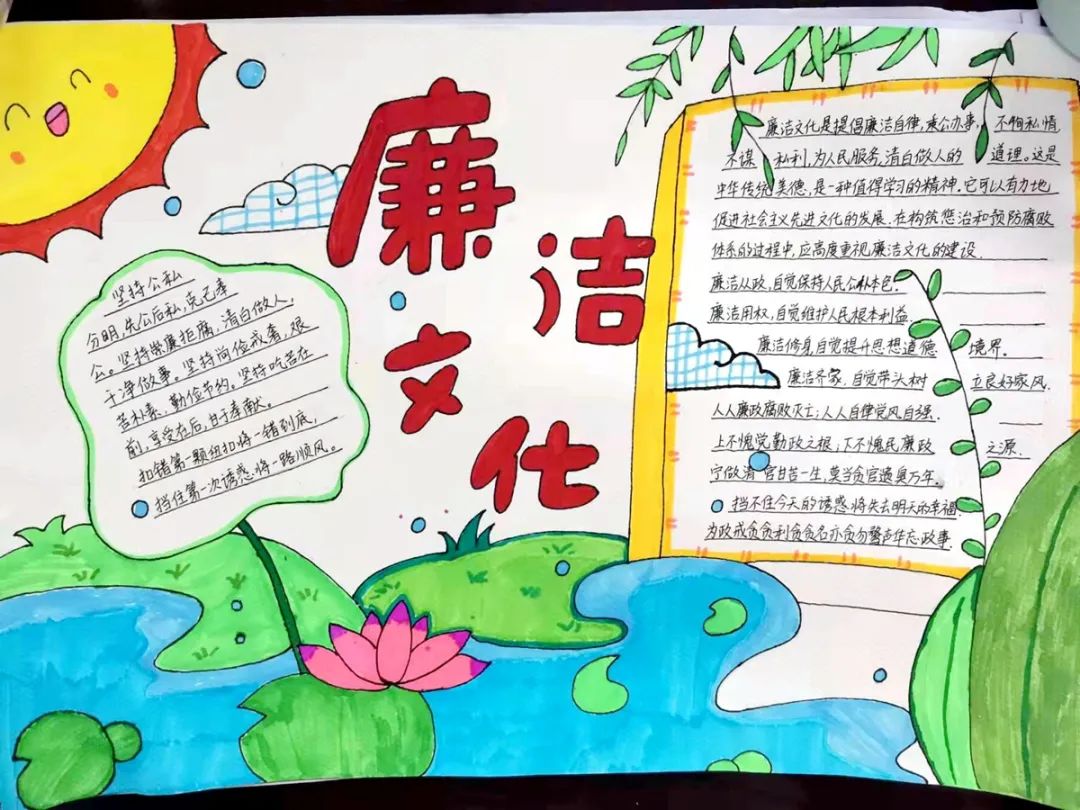 廉
洁
文
化
坚持公私
分明,先公后私,克己奉
公。坚持崇廉拒腐,清白做人,
干净做事。坚持尚俭戒奢,艰
苦朴素,勤俭节约。坚持吃苦在
前,享受在后,甘于奉献。
扣错第一颗纽扣将一错到底,
挡住第一次诱惑将一路顺风。
廉洁文化是提倡廉洁自律,秉公办事, 不徇私情
不谋 私利,为人民服务,清白做人的 道理。这是
中华传统美德,是一种值得学习的精神.它可以有力地
促进社会主义先进文化的发展.在构筑惩治和预防腐败
体系的过程中,应高度重视廉洁文化的建设.
廉洁从政,自觉保持人民公仆本色.
廉洁用权,自觉维护人民根本利益.
廉洁修身,自觉提升思想道德 境界.
廉洁齐家,自觉带头树 立良好家风.
人人廉政腐败灭亡;人人自律党风自强.
上不愧党勤政之根,下不愧民廉政 之源.
宁做清官甘苦一生,莫当贪官遗臭万年.
挡不住今天的诱惑.将失去明天的幸福.
为政戒贪贪利贪贪名亦贪勿鹜声华忘政事.